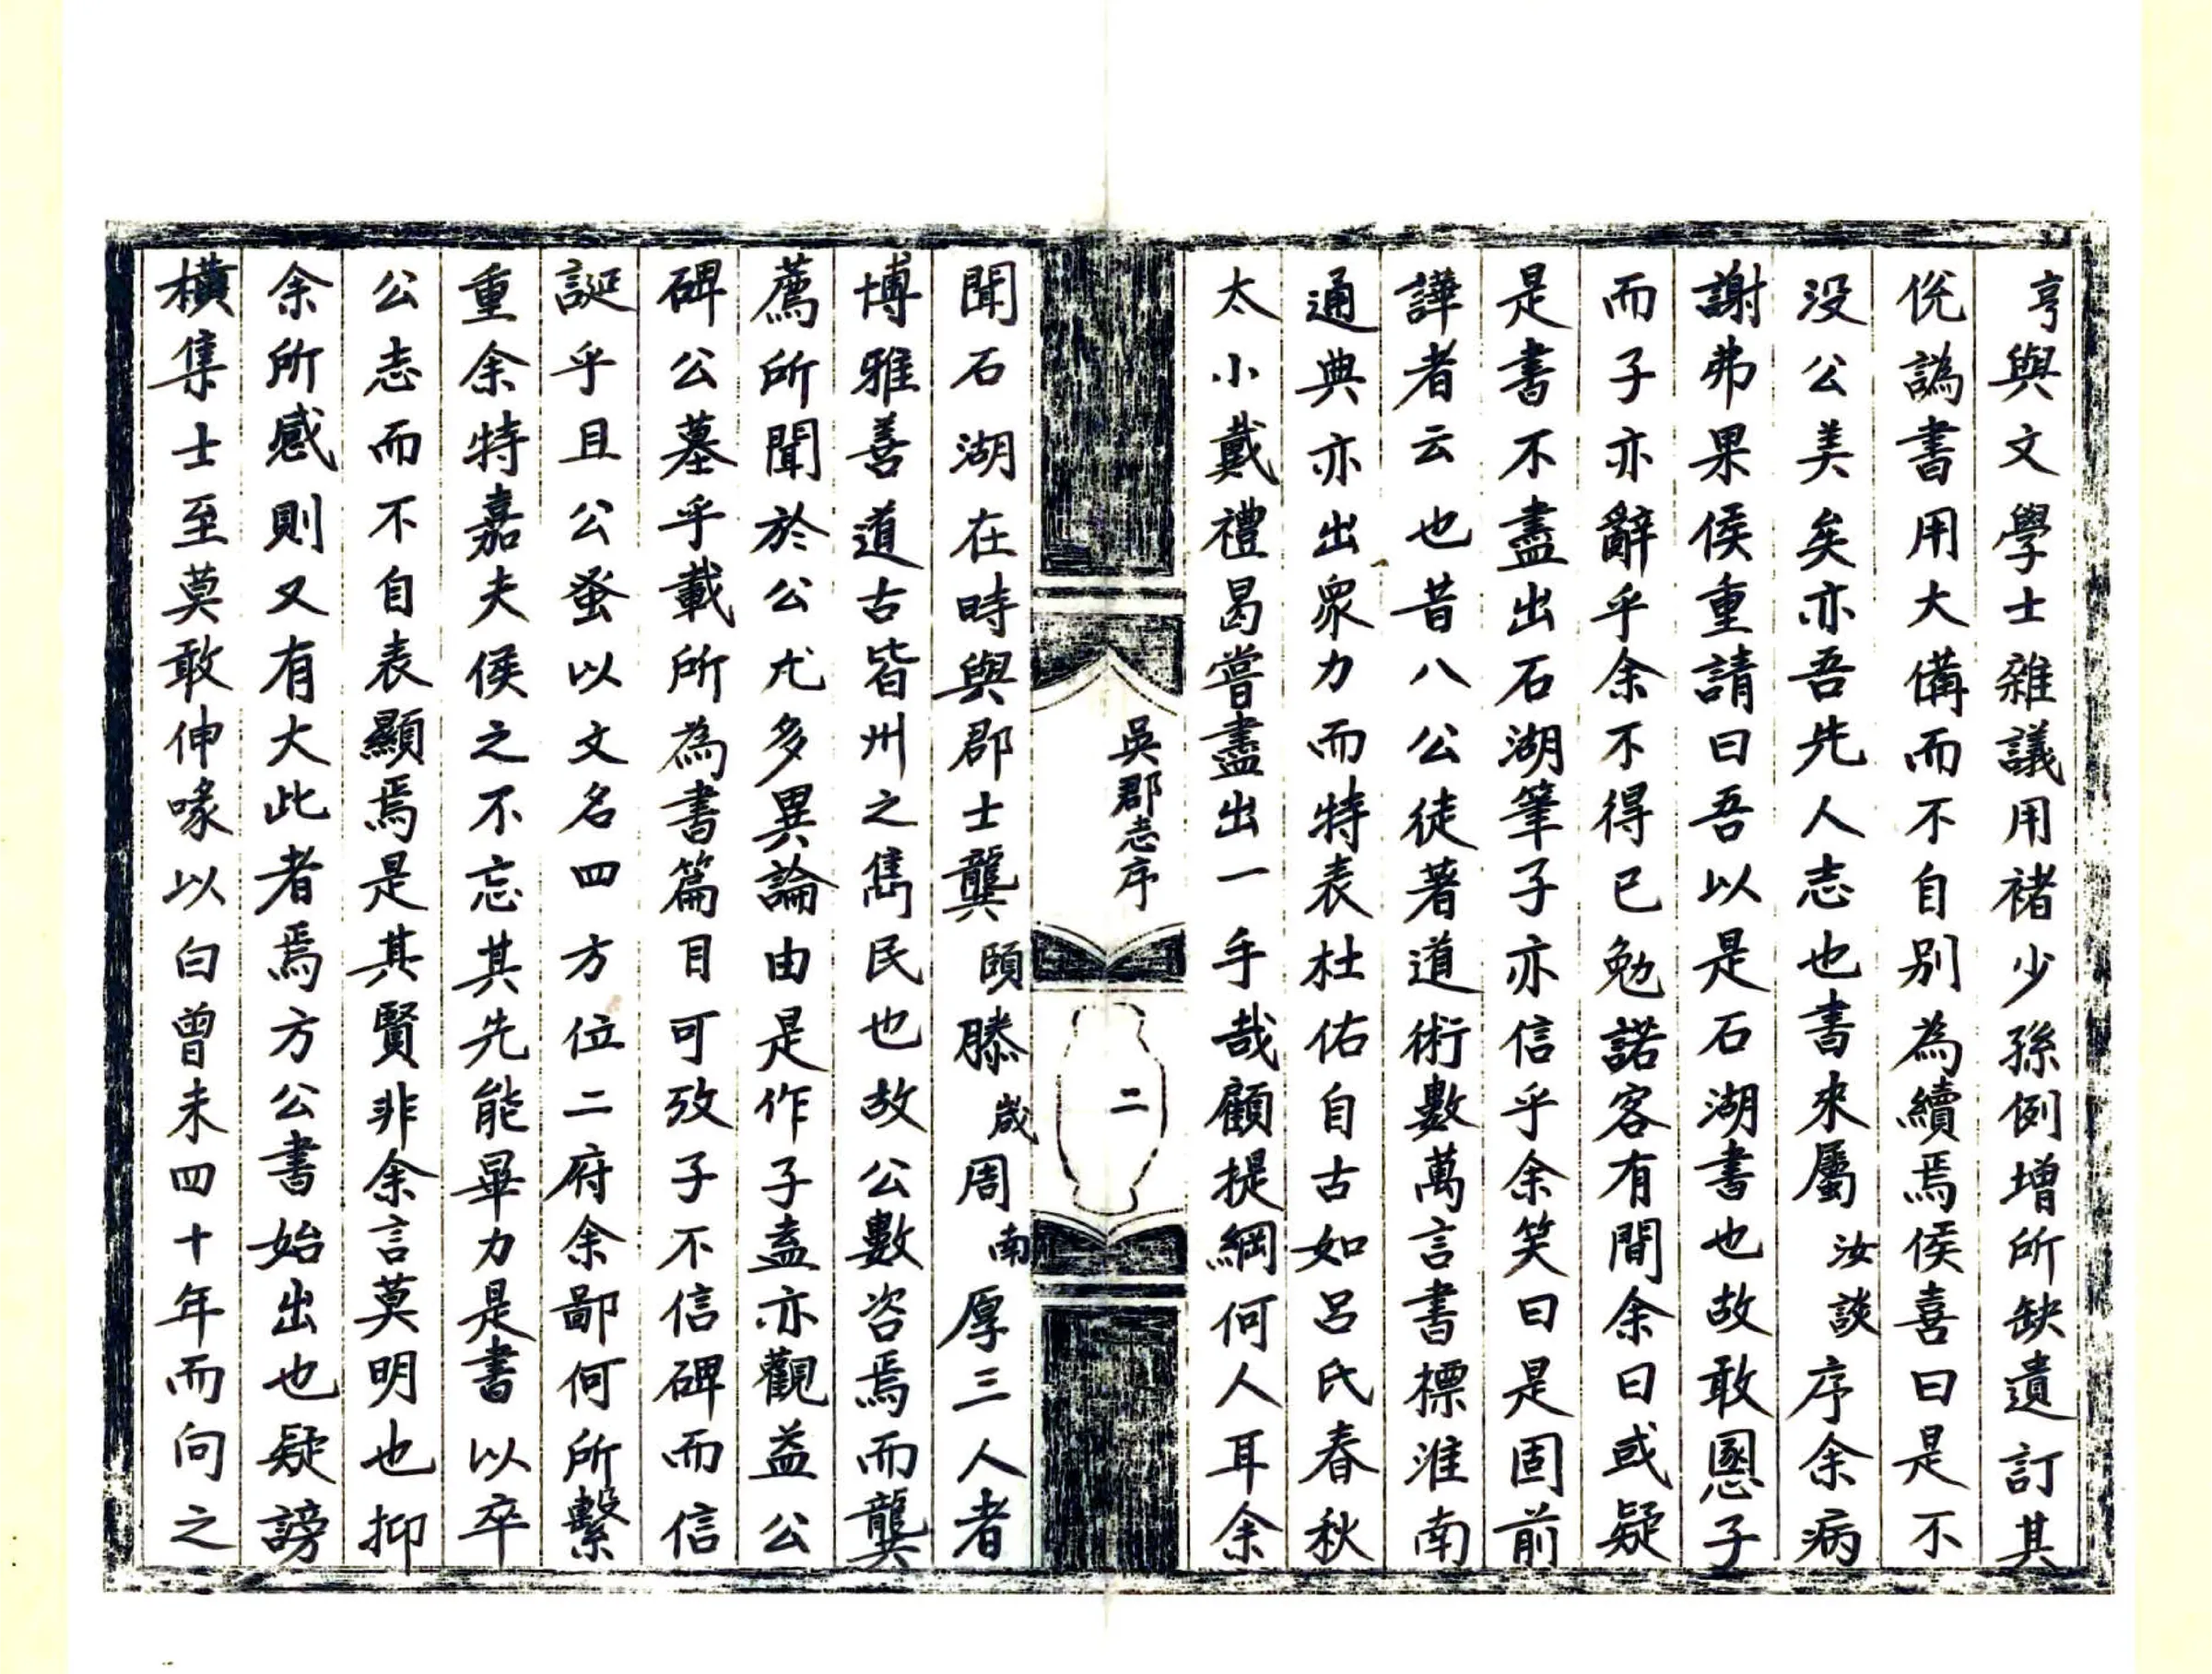 亨與文學士雜議用褚少孫例增所缺遺訂其
侻譌書用大備而不自別為續焉侯喜曰是不
没公美矣亦吾先人志也書來屬汝談序余病
謝弗果侯重請曰吾以是石湖書也故敢慁子
而子亦辭乎余不得已勉諾客有間余曰或疑
是書不盡出石湖筆子亦信乎余笑曰是固前
譁者云也昔八公徒著道術數萬言書標淮南
通典亦出衆力而特表杜佑自古如呂氏春秋
太小戴禮曷嘗盡出一手哉顧提綱何人耳余
吳郡志序
二
聞石湖在時與郡士龔頤滕宬周南厚三人者
博雅善道古皆州之雋民也故公數咨焉而龔
薦所聞於公尤多異論由是作子盍亦觀益公
碑公墓乎載所為書篇目可攷子不信碑而信
誕乎且公蚤以文名四方位二府余鄙何所繫
重余特嘉夫侯之不忘其先能畢力是書以卒
公志而不自表顯焉是其賢非余言莫明也抑
余所感則又有大此者焉方公書始出也疑謗
横集士至莫敢伸喙以白曾未四十年而向之